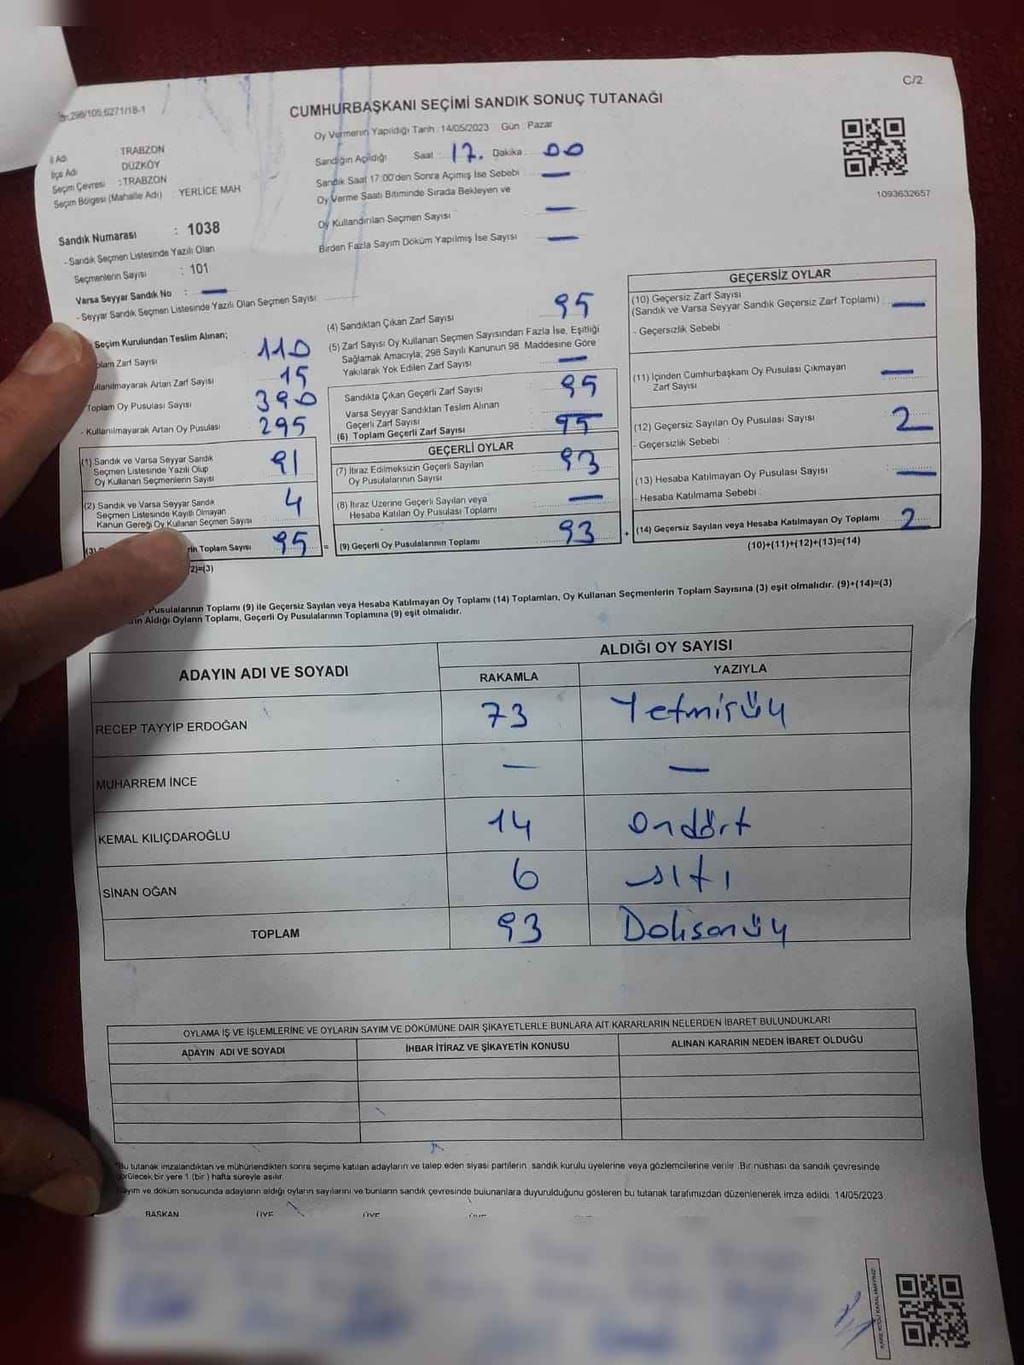 C/2
CUMHURBAŞKANI SEÇİMİ SANDIK SONUÇ TUTANAĞI
Oy Vermenin Yapıldığı Tarih : 14/05/2023 Gün : Pazar
Sandığın Açıldığı Saat : 17. Dakika : 00
Sandık Saat 17:00'den Sonra Açılmış İse Sebebi : —
Oy Verme Saati Bitiminde Sırada Bekleyen ve
Oy Kullandırılan Seçmen Sayısı : —
Birden Fazla Sayım Döküm Yapılmış İse Sayısı : —
1093632657
İl Adı : TRABZON
İlçe Adı : DÜZKÖY
Seçim Çevresi : TRABZON
Seçim Bölgesi (Mahalle Adı) : YERLİCE MAH
Sandık Numarası : 1038
- Sandık Seçmen Listesinde Yazılı Olan
Seçmenlerin Sayısı : 101
Varsa Seyyar Sandık No : —
- Seyyar Sandık Seçmen Listesinde Yazılı Olan Seçmen Sayısı :
Seçim Kurulundan Teslim Alınan;
Zarf Sayısı 110
Artan Zarf Sayısı 15
Toplam Oy Pusulası Sayısı 390
- Kullanılmayarak Artan Oy Pusulası 295
(1) Sandık ve Varsa Seyyar Sandık
Seçmen Listesinde Yazılı Olup
Oy Kullanan Seçmenlerin Sayısı 91
(2) Sandık ve Varsa Seyyar Sandık
Seçmen Listesinde Kayıtlı Olmayan
Kanun Gereği Oy Kullanan Seçmen Sayısı 4
Toplam Sayısı 95 =
(4) Sandıktan Çıkan Zarf Sayısı 95
(5) Zarf Sayısı Oy Kullanan Seçmen Sayısından Fazla İse, Eşitliği
Sağlamak Amacıyla, 298 Sayılı Kanunun 98. Maddesine Göre
Yakılarak Yok Edilen Zarf Sayısı —
Sandıkta Çıkan Geçerli Zarf Sayısı 95
Varsa Seyyar Sandıktan Teslim Alınan
Geçerli Zarf Sayısı —
(6) Toplam Geçerli Zarf Sayısı 95
GEÇERLİ OYLAR
(7) İtiraz Edilmeksizin Geçerli Sayılan
Oy Pusulalarının Sayısı 93
(8) İtiraz Üzerine Geçerli Sayılan veya
Hesaba Katılan Oy Pusulası Toplamı —
(9) Geçerli Oy Pusulalarının Toplamı 93 +
GEÇERSİZ OYLAR
(10) Geçersiz Zarf Sayısı
(Sandık ve Varsa Seyyar Sandık Geçersiz Zarf Toplamı) —
- Geçersizlik Sebebi :
(11) İçinden Cumhurbaşkanı Oy Pusulası Çıkmayan
Zarf Sayısı —
(12) Geçersiz Sayılan Oy Pusulası Sayısı 2
- Geçersizlik Sebebi :
(13) Hesaba Katılmayan Oy Pusulası Sayısı —
- Hesaba Katılmama Sebebi :
(14) Geçersiz Sayılan veya Hesaba Katılmayan Oy Toplamı 2
(10)+(11)+(12)+(13)=(14)
Pusulalarının Toplamı (9) ile Geçersiz Sayılan veya Hesaba Katılmayan Oy Toplamı (14) Toplamları, Oy Kullanan Seçmenlerin Toplam Sayısına (3) eşit olmalıdır. (9)+(14)=(3)
Aldığı Oyların Toplamı, Geçerli Oy Pusulalarının Toplamına (9) eşit olmalıdır.
ADAYIN ADI VE SOYADI
ALDIĞI OY SAYISI
RAKAMLA YAZIYLA
RECEP TAYYİP ERDOĞAN 73 Yetmişüç
MUHARREM İNCE — —
KEMAL KILIÇDAROĞLU 14 Ondört
SİNAN OĞAN 6 Altı
TOPLAM 93 Doksanüç
OYLAMA İŞ VE İŞLEMLERİNE VE OYLARIN SAYIM VE DÖKÜMÜNE DAİR ŞİKAYETLERLE BUNLARA AİT KARARLARIN NELERDEN İBARET BULUNDUKLARI
ADAYIN ADI VE SOYADI İHBAR İTİRAZ VE ŞİKAYETİN KONUSU ALINAN KARARIN NEDEN İBARET OLDUĞU
*Bu tutanak imzalandıktan ve mühürlendikten sonra seçime katılan adayların ve talep eden siyasi partilerin sandık kurulu üyelerine veya gözlemcilerine verilir. Bir nüshası da sandık çevresinde
görülecek bir yere 1 (bir) hafta süreyle asılır.
Sayım ve döküm sonucunda adayların aldığı oyların sayılarını ve bunların sandık çevresinde bulunanlara duyurulduğunu gösteren bu tutanak tarafımızdan düzenlenerek imza edildi. 14/05/2023
BAŞKAN ÜYE ÜYE ÜYE